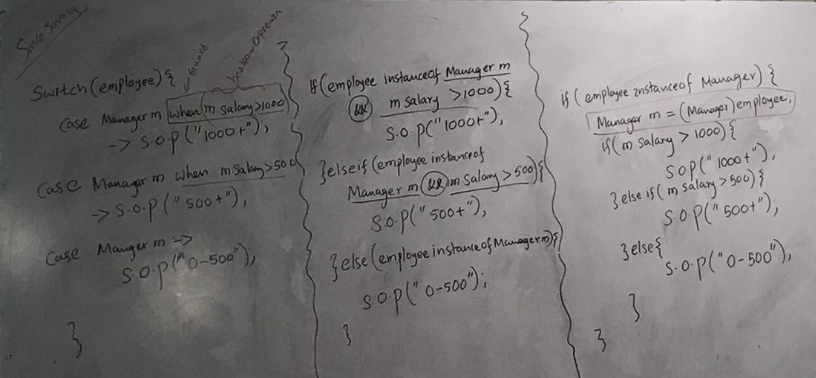 Guard
boolean expression
Switch(employee){
Case Manager m when m salary>1000
-> S.O.P("1000+"),
Case Manager m when m salary>500
-> S.O.P("500+"),
Case Manger m ->
S.O.P("0-500"),
}
if(employee instanceof Manager m
&& m salary >1000){
S.O.P("1000+"),
}elseif(employee instanceof
Manager m && m salary > 500){
S.O.P("500+"),
}else(employee instanceof Manager m){
S.O.P("0-500");
}
if( employee instanceof Manager) {
Manager m = (Manager)employee,
if(m salary > 1000){
S O P("1000+"),
}else if(m salary > 500){
S O P("500+"),
}else{
S.O.P("0-500"),
}
}